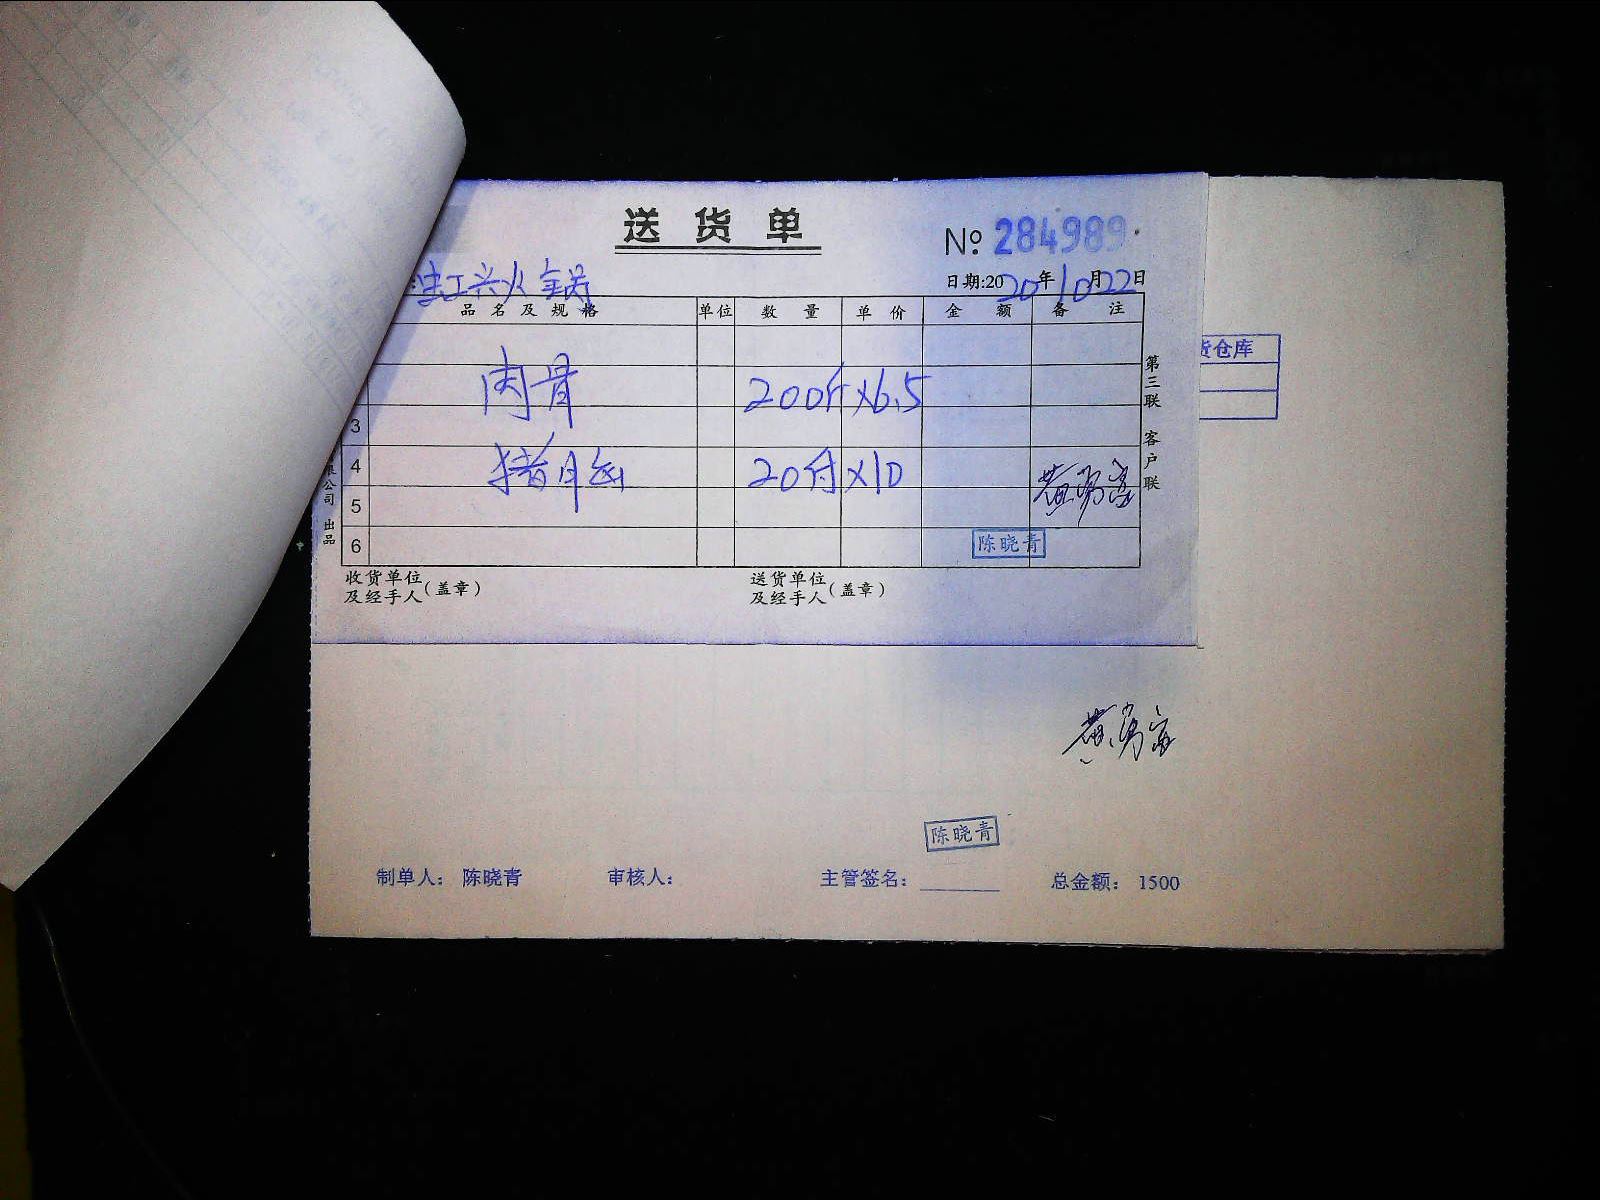 送货单
№ 284989
火锅
日期:2020年10月22日
品名及规格 单位 数量 单价 金额 备注
肉骨 200斤×6.5
3
4 猪脑 20付×10
5
6
陈晓青
收货单位及经手人(盖章) 送货单位及经手人(盖章)
第三联 客户联
限公司 出品
货仓库
陈晓青
制单人: 陈晓青 审核人: 主管签名: 总金额: 1500